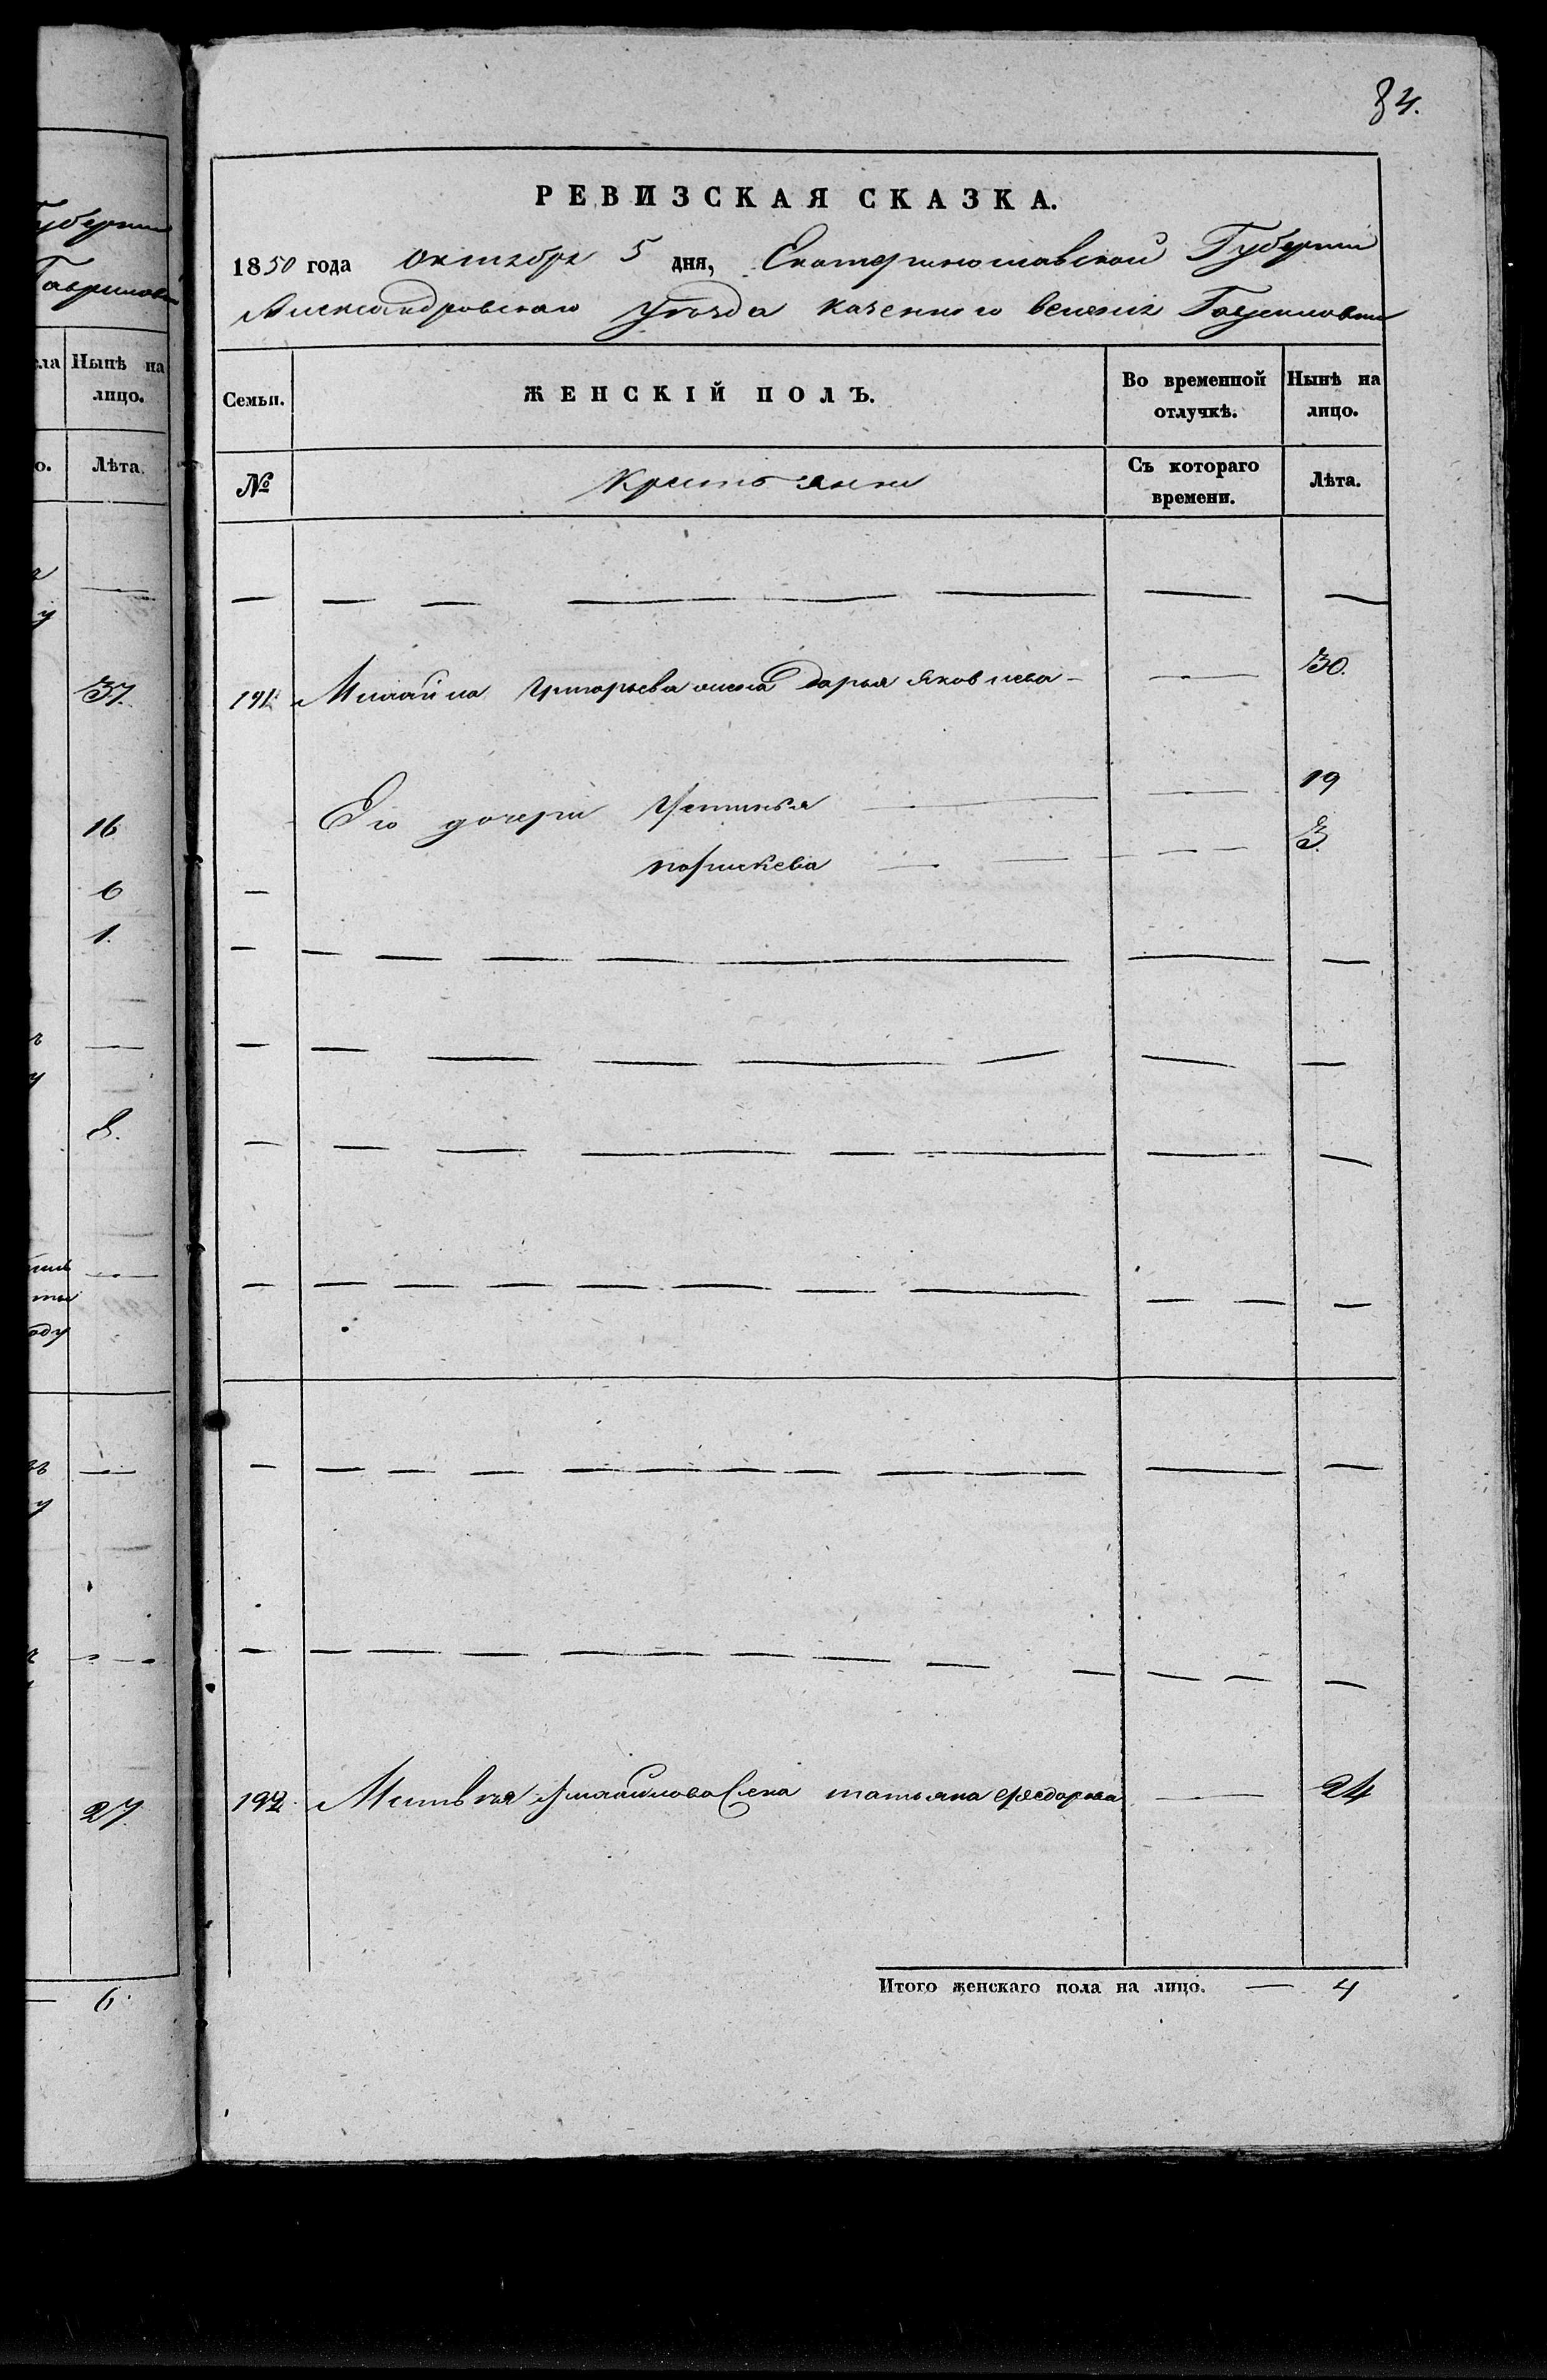 84.
РЕВИЗСКАЯ СКАЗКА.
1850 года октября 5 дня, Екатеринославской Губернии
Александровскаго уѣзда казенного селения Гавриловки
Семьи.
ЖЕНСКІЙ ПОЛЪ.
Во временной отлучкѣ.
Нынѣ на лицо.
№
Крестьянки
Съ котораго времени.
Лѣта.
191 Михайла Григорьева жена Дарья Яковлева — 30.
Его дочери Устинья — 19
Парискева — 3.
192 Татьяна Федорова — 24
Итого женскаго пола на лицо. — 4
Губернии
Гавриловки
Нынѣ на
лицо.
Лѣта.
37.
16
6
1.
8.
оду
27.
6.